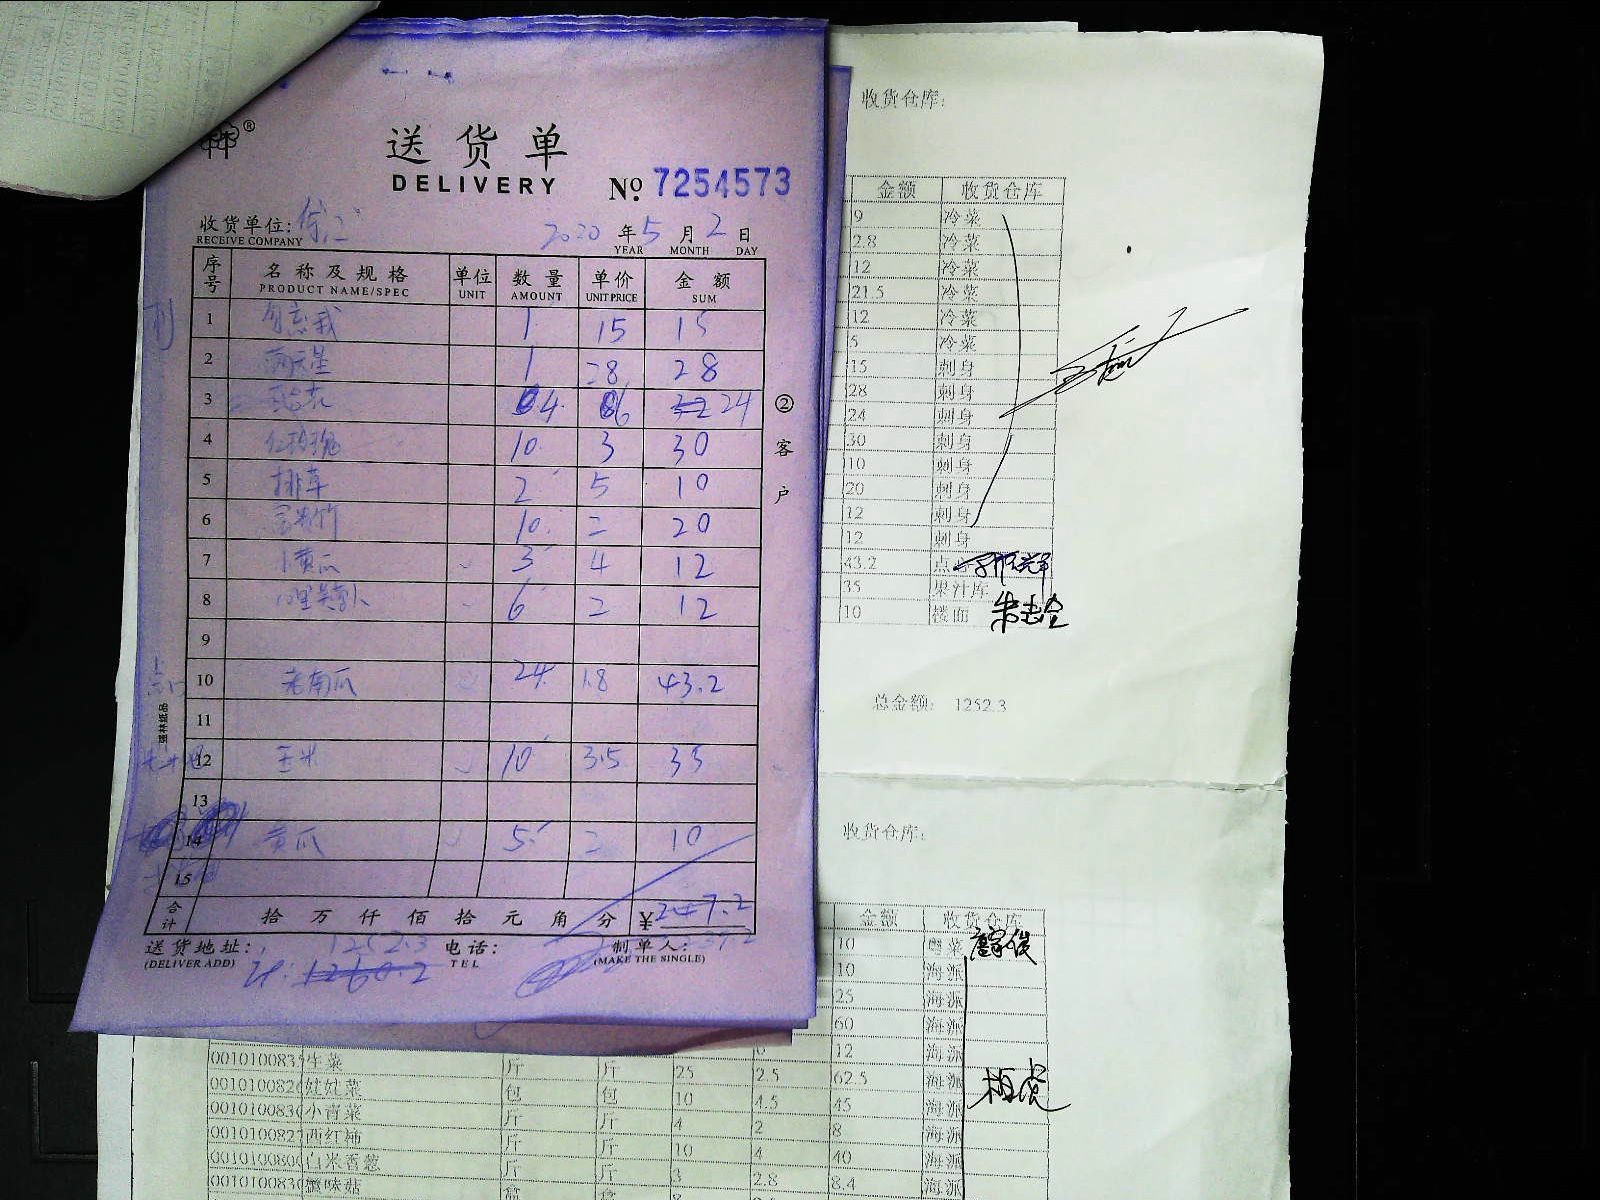 送货单
DELIVERY
№ 7254573
收货单位:
RECEIVE COMPANY
2020 年 5 月 2 日
YEAR MONTH DAY
序号 名称及规格 单位 数量 单价 金额
PRODUCT NAME/SPEC UNIT AMOUNT UNIT PRICE SUM
1 勿忘我 1 15 15
2 满天星 1 28 28
3 4 6 24
4 红玫瑰 10 3 30
5 排草 2 5 10
6 富贵竹 10 2 20
7 黄瓜 3 4 12
8 6 2 12
9
10 老南瓜 24 1.8 43.2
11
12 玉米 10 3.5 35
13
14 黄瓜 5 2 10
15
合计 拾 万 仟 佰 拾 元 角 分 ¥ 247.2
送货地址: 1252.3 电话: 制单人:
(DELIVER ADD) TEL (MAKE THE SINGLE)
1260.2
②客户
强林纸品
收货仓库:
金额 收货仓库
9 冷菜
2.8 冷菜
12 冷菜
21.5 冷菜
12 冷菜
5 冷菜
15 刺身
28 刺身
24 刺身
30 刺身
10 刺身
20 刺身
12 刺身
12 刺身
43.2 点
35 果汁库
10 楼面
总金额: 1252.3
收货仓库:
金额 收货仓库
10 粤菜
10 海派
25 海派
60 海派
6 12 海派
生菜 斤 斤 25 2.5 62.5 海派
娃娃菜 包 包 10 4.5 45 海派
小青菜 斤 斤 4 2 8 海派
西红柿 斤 斤 10 4 40 海派
白米香葱 斤 斤 3 2.8 8.4 海派
蟹味菇 盒 盒